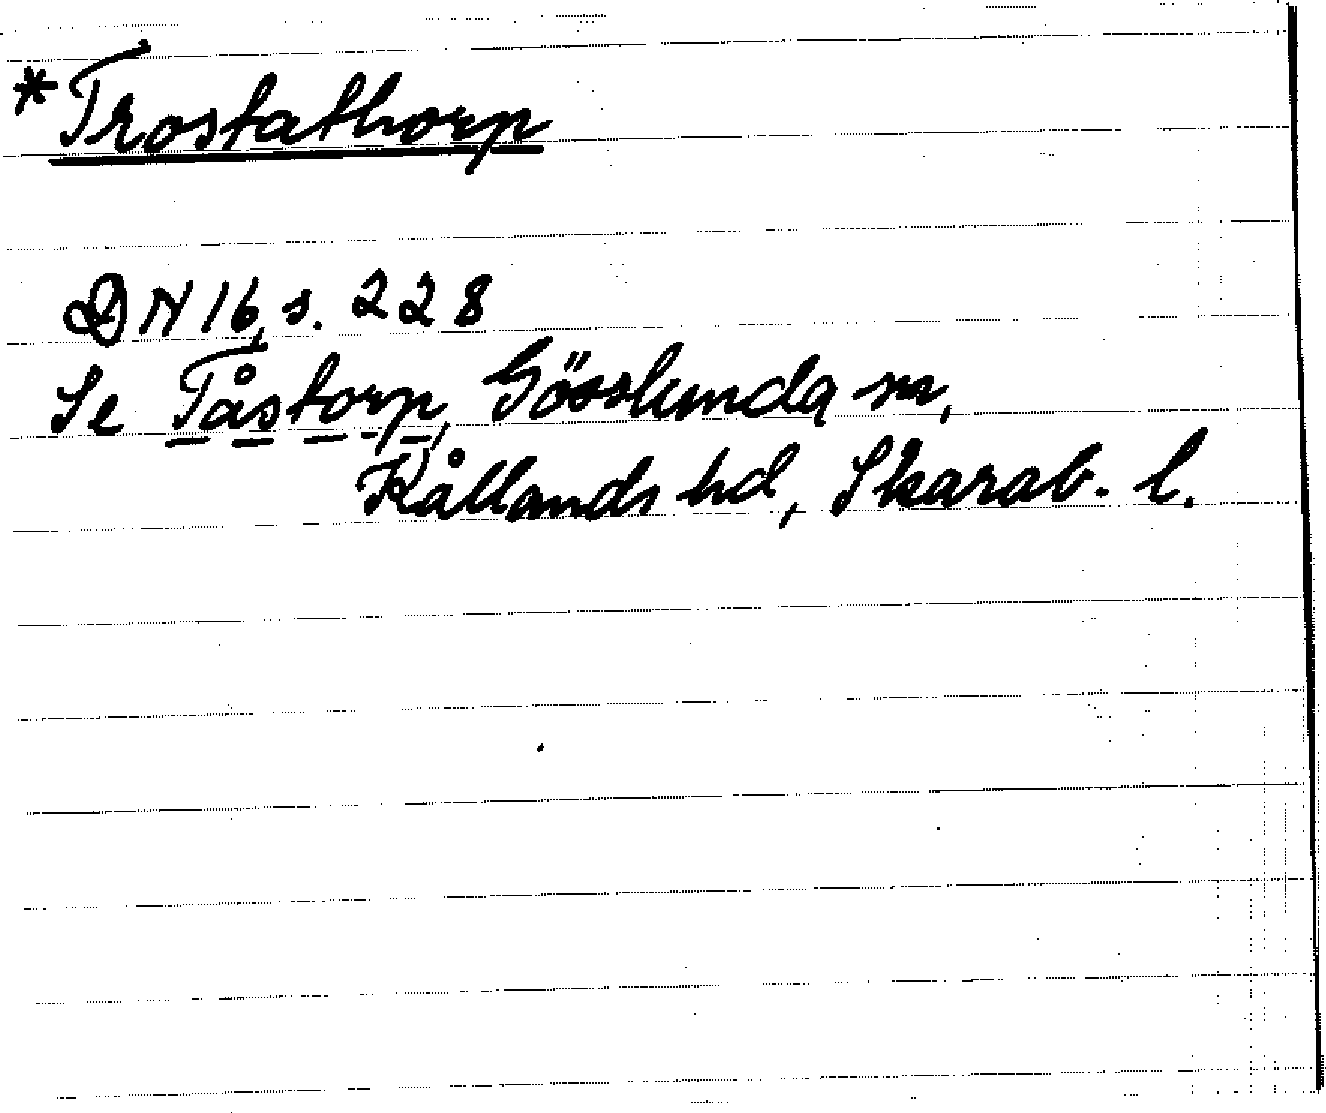 *Trostathorp
DN 16, s. 228
Se Tåstorp, Gösslunda sn,
Kållands hd, Skarab. l.